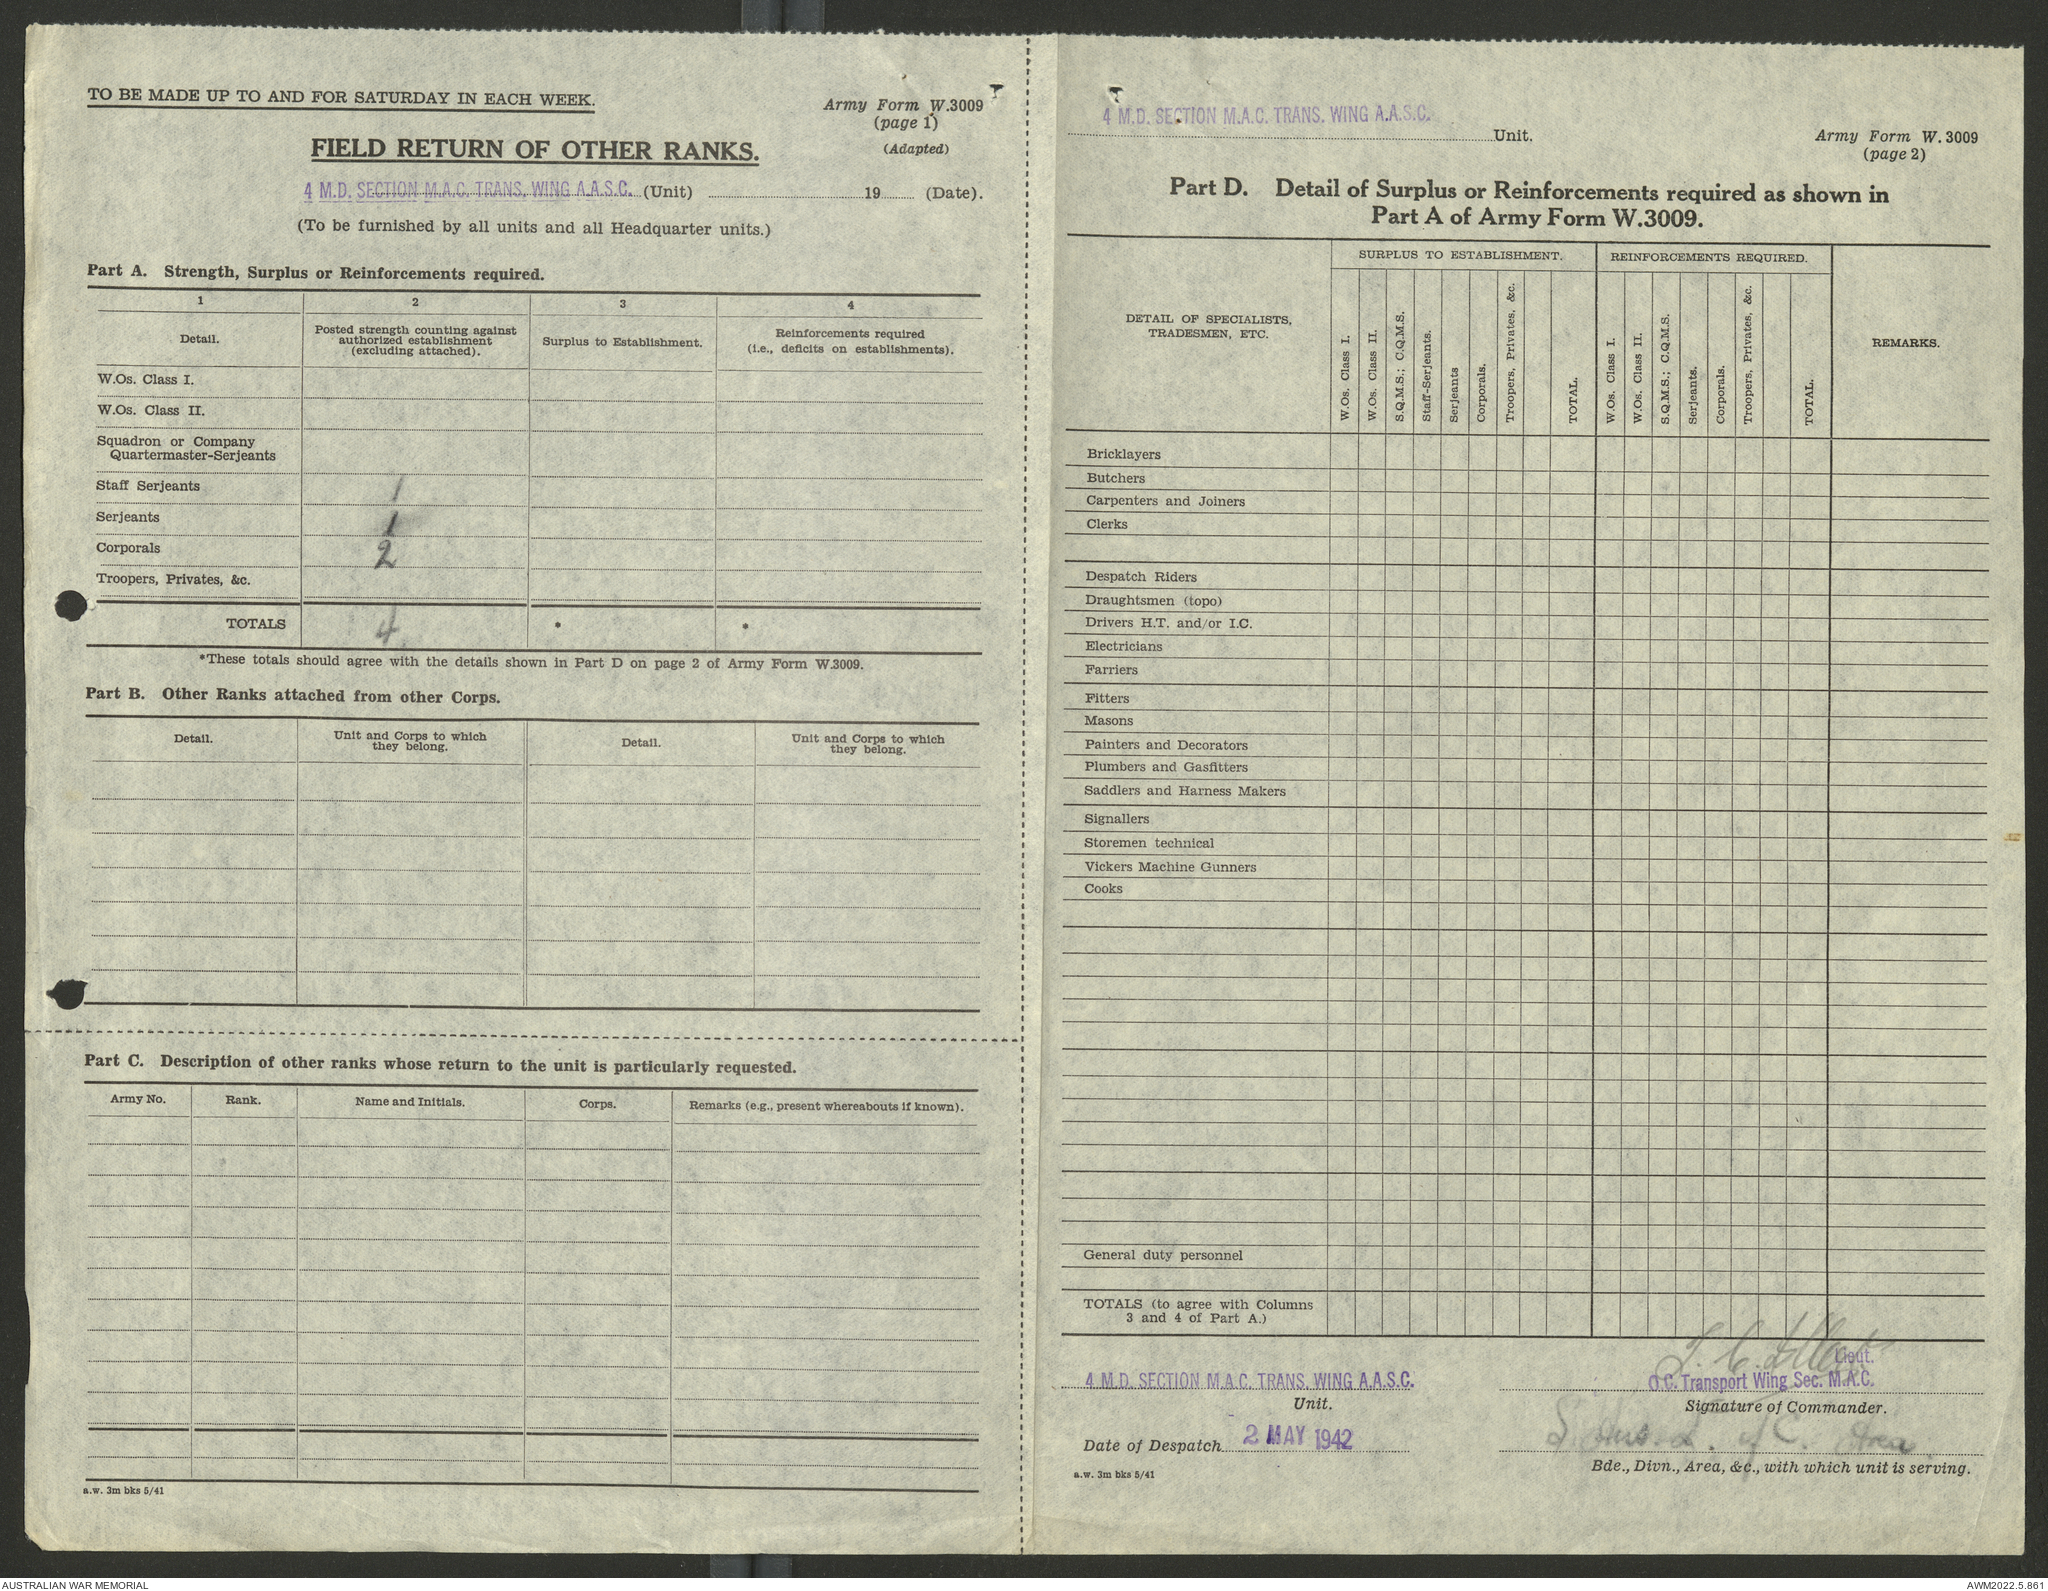 TO BE MADE UP TO AND FOR SATURDAY IN EACH WEEK.
Army Form W.3009
(page 1)
(Adapted)
FIELD RETURN OF OTHER RANKS.
4 M.D. SECTION M.A.C. TRANS. WING A.A.S.C. (Unit) 19 (Date).
(To be furnished by all units and all Headquarter units.)
Part A. Strength, Surplus or Reinforcements required.
1 2 3 4
Detail.
Posted strength counting against
authorized establishment
(excluding attached).
Surplus to Establishment.
Reinforcements required
(i.e., deficits on establishments).
W.Os. Class I.
W.Os. Class II.
Squadron or Company
Quartermaster-Serjeants
Staff Serjeants 1
Serjeants 1
Corporals 2
Troopers, Privates, &c.
TOTALS 4 * *
*These totals should agree with the details shown in Part D on page 2 of Army Form W.3009.
Part B. Other Ranks attached from other Corps.
Detail.
Unit and Corps to which
they belong.
Detail.
Unit and Corps to which
they belong.
Part C. Description of other ranks whose return to the unit is particularly requested.
Army No. Rank. Name and Initials. Corps. Remarks (e.g., present whereabouts if known).
a.w. 3m bks 5/41
4 M.D. SECTION M.A.C. TRANS. WING A.A.S.C.
Unit.
Army Form W.3009
(page 2)
Part D. Detail of Surplus or Reinforcements required as shown in
Part A of Army Form W.3009.
DETAIL OF SPECIALISTS,
TRADESMEN, ETC.
SURPLUS TO ESTABLISHMENT.
W.Os. Class I.
W.Os. Class II.
S.Q.M.S.; C.Q.M.S.
Staff-Serjeants.
Serjeants
Corporals.
Troopers, Privates, &c.
TOTAL.
REINFORCEMENTS REQUIRED.
W.Os. Class I.
W.Os. Class II.
S.Q.M.S.; C.Q.M.S.
Serjeants.
Corporals.
Troopers, Privates, &c.
TOTAL.
REMARKS.
Bricklayers
Butchers
Carpenters and Joiners
Clerks
Despatch Riders
Draughtsmen (topo)
Drivers H.T. and/or I.C.
Electricians
Farriers
Fitters
Masons
Painters and Decorators
Plumbers and Gasfitters
Saddlers and Harness Makers
Signallers
Storemen technical
Vickers Machine Gunners
Cooks
General duty personnel
TOTALS (to agree with Columns
3 and 4 of Part A.)
4 M.D. SECTION M.A.C. TRANS. WING A.A.S.C.
Unit.
Date of Despatch 2 MAY 1942
a.w. 3m bks 5/41
Lieut.
O.C. Transport Wing Sec. M.A.C.
Signature of Commander.
of C. Area
Bde., Divn., Area, &c., with which unit is serving.
AUSTRALIAN WAR MEMORIAL
AWM2022.5.861